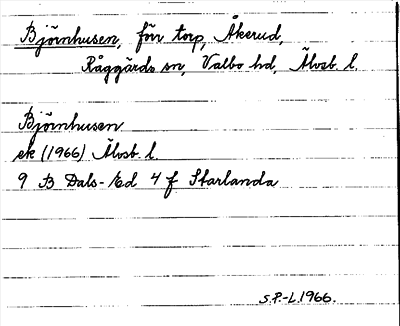 Björnhusen, förr torp, Åkerud,
Råggärds sn, Valbo hd, Älvsb. l.
Björnhusen
ek (1966) Älvsb. l.
9 B Dals-Ed 4 f Starlanda
S.P.-L. 1966.